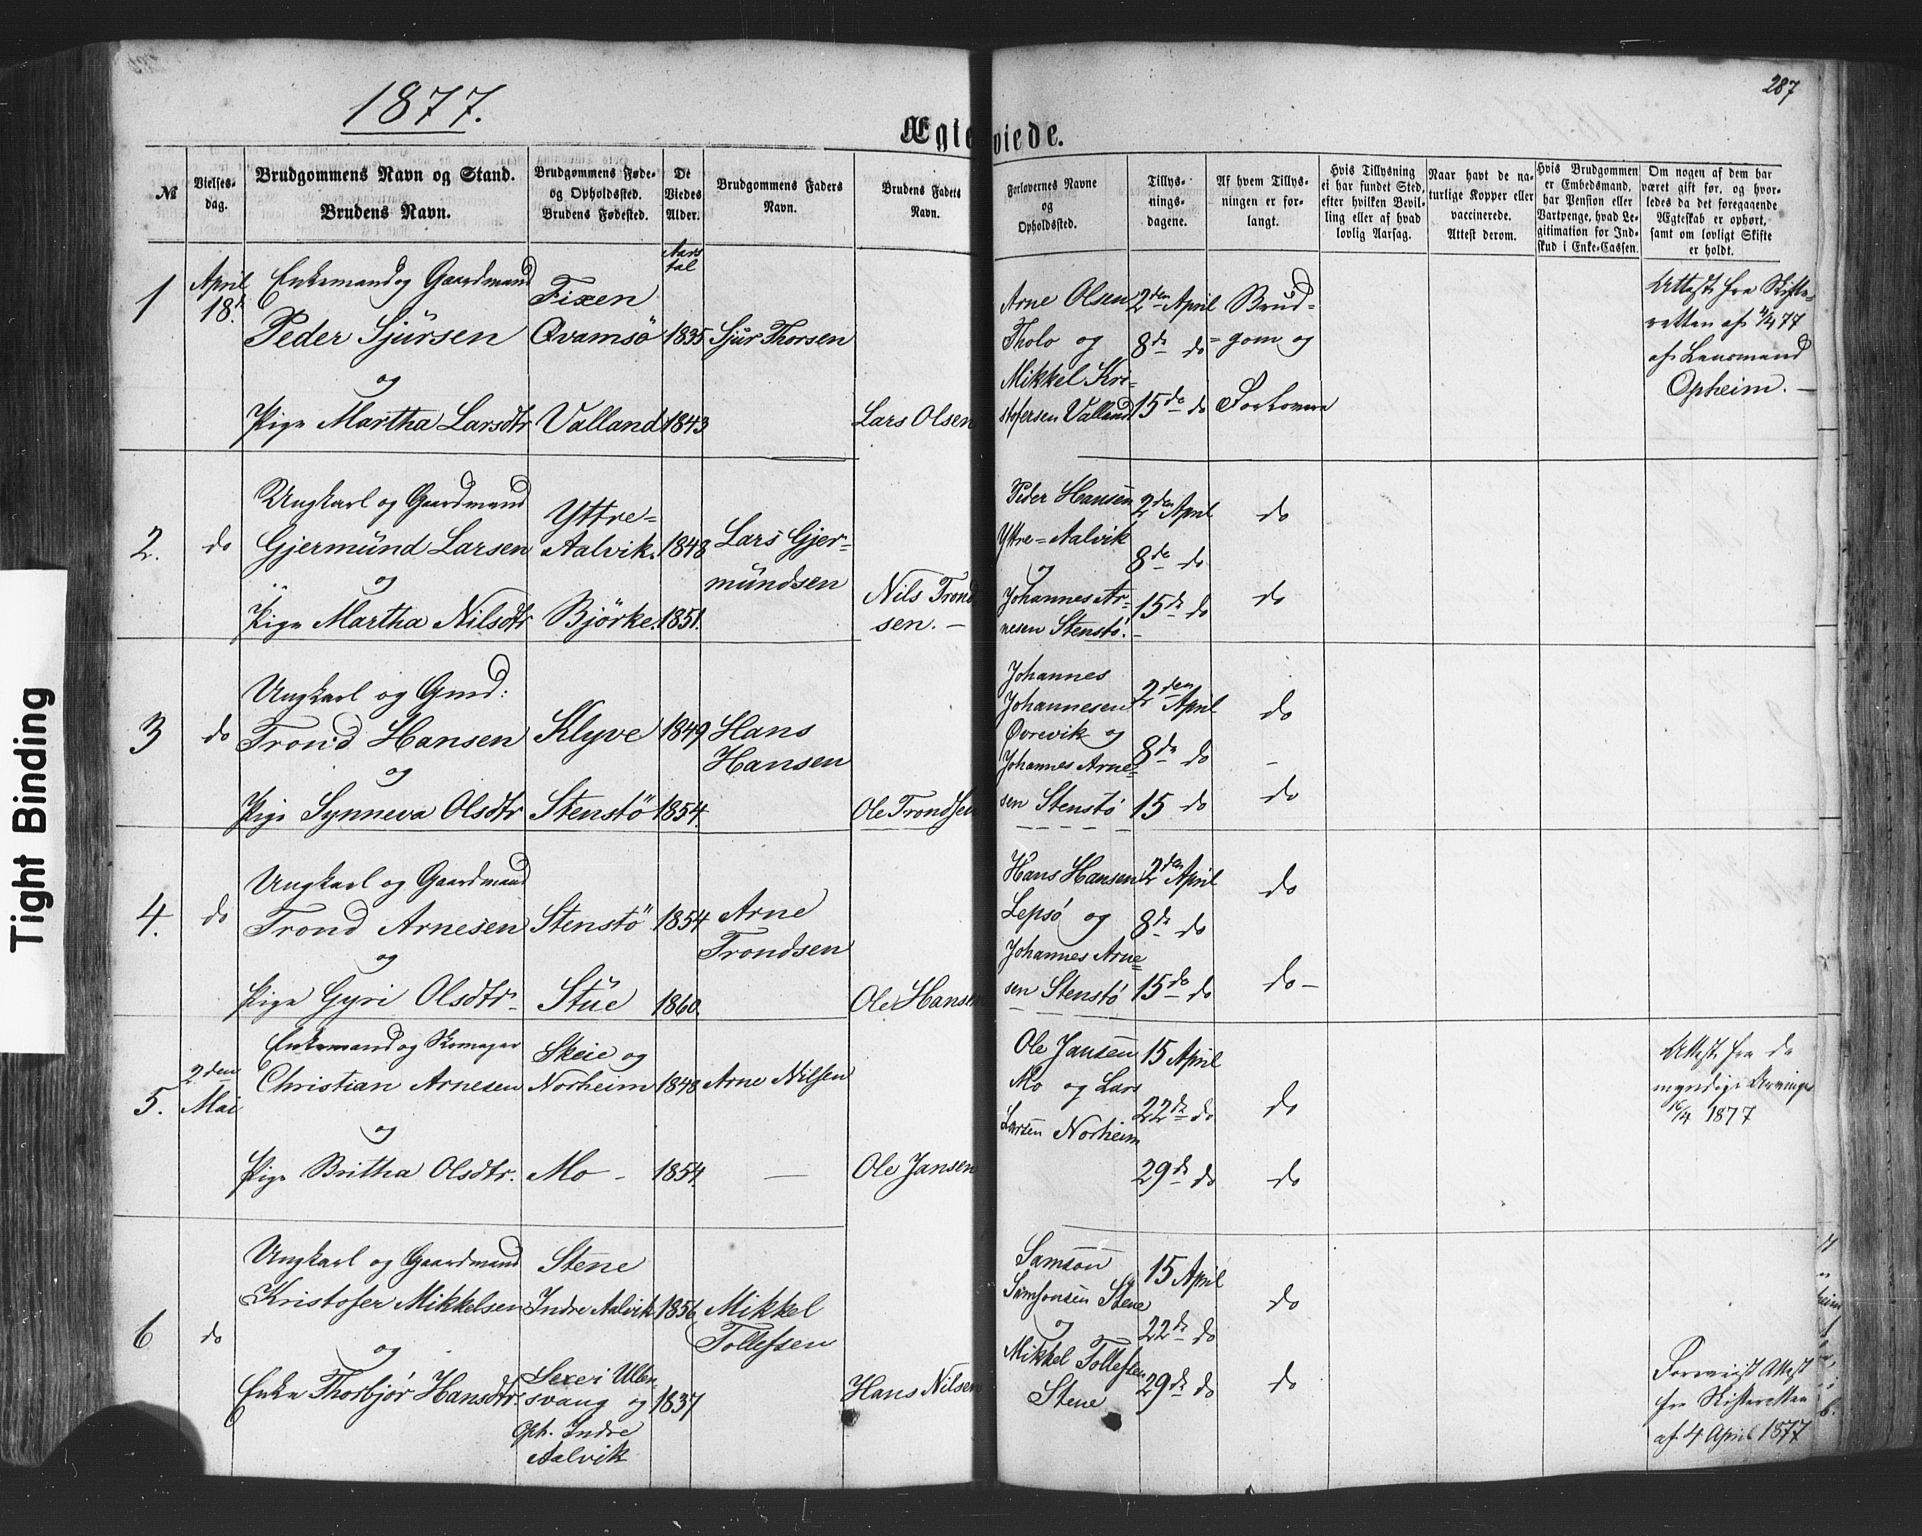 287
1877.
Ægteviede.
№
Vielses-
dag.
Brudgommens Navn og Stand.
Brudens Navn.
Brudgommens Føde-
og Opholdssted.
Brudens Fødested.
De
Viedes
Alder.
Brudgommens Faders
Navn.
Brudens Faders
Navn.
Forlovernes Navne
og
Opholdssted.
Tillys-
nings-
dagene.
Af hvem Tillys-
ningen er for-
langt.
Hvis Tillysning
ei har fundet Sted,
efter hvilken Bevil-
ling eller af hvad
lovlig Aarsag.
Naar havt de na-
turlige Kopper eller
vaccinerede.
Attest derom.
Hvis Brudgommen
er Embedsmand,
har Pension eller
Vartpenge, hvad Le-
gitimation for Ind-
skud i Enke-Cassen.
Om nogen af dem har
været gift før, og hvor-
ledes da det foregaaende
Ægteskab er ophørt,
samt om lovligt Skifte
er holdt.
Aars
tal
1
April
18.
Enkemand og Gaardmand
Peder Sjürsen
og
Pige Martha Larsdtr
Fixen
Qvamsö
Valland
1835
1843
Sjür Thorsen
Lars Olsen
Arne Olsen
Tholo og
Mikkel Kri-
stofersen Valland
2den April
8de do
15de do
Brud-
=gom og
Forlovere
Attest fra Skifte-
retten af 4/4 77
af Lensmand
Opheim. -
2.
do
Ungkarl og Gaardmand
Gjermünd Larsen
og
Pige Martha Nilsdtr
Yttre=
Aalvik.
Björke.
1848
1851.
Lars Gjer=
mündsen
Nils Trond
sen. -
Peder Hansen
Yttre=Aalvik
og
Johannes Ar=
nesen Stenstö.
2den April
8de do
15de do
do
do
3
do
Ungkarl og Gmd:
Trond Hansen
og
Pige Synneva Olsdtr
Klyve
Stenstö
1849
1854.
Hans
Hansen
Ole Trondsen
Johannes
Johannesen
Övrevik og
Johannes Arne=
sen Stenstö
2den April
8de do
15 do
do
do
4.
do
Ungkarl og Gaardmand
Trond Arnesen
og
Pige Gyri Olsdtr
Stenstö
Stüe
1854
1860.
Arne
Trondsen
Ole Hansen
Hans Hansen
Lepsö og
Johannes Arne=
sen Stenstö
2den April
8de do
15de do
do
do -
5.
2den
Mai
Enkemand og Skomager
Christian Arnesen
og
Pige Britha Olsdtr.
Skeie og
Norheim
Mo -
1848
1854.
Arne Nilsen
-
Ole Jansen
Ole Jansen
Mo og Lars
Larsen Norheim
15 April
22de do
29de do
do
do
Attest fra de
myndige Arvinger
16/4 1877
6
do
Ungkarl og Gaardmand
Kristofer Mikkelsen
og
Enke Thorbjör Hansdtr.
Stene
Indre Aalvik
Sexe i Ullen-
svang og
Oph. Indre
Aalvik
1856
1837
Mikkel
Tollefsen
Hans Nilsen
Samson
Simsonsen Stene
og
Mikkel Tollefsen
Stene
15 April
22de do
29de do
do
do
Forevist Attest
fra Skifteretten
af 4 April 1877
Tight Binding